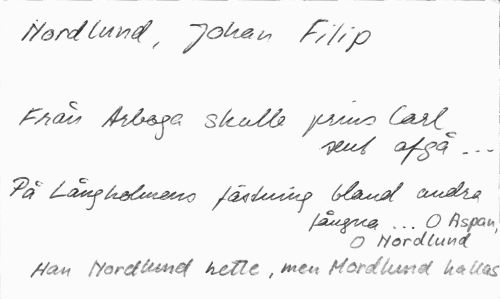 Nordlund, Johan Filip
Från Arboga skulle prins Carl
sent afgå ...
På Långholmens fästning bland andra
fångna ... O Aspan,
O Nordlund
Han Nordlund hette, men Mordlund kallas